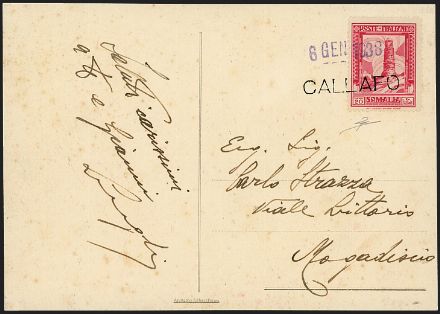 Saluti carissimi
a te e Gianni
Luigi
6 GEN 1938
CALLAFO
POSTE ITALIANE
SOMALIA
Egr. Sig.
Carlo Strazza
Viale Littorio
Mogadiscio